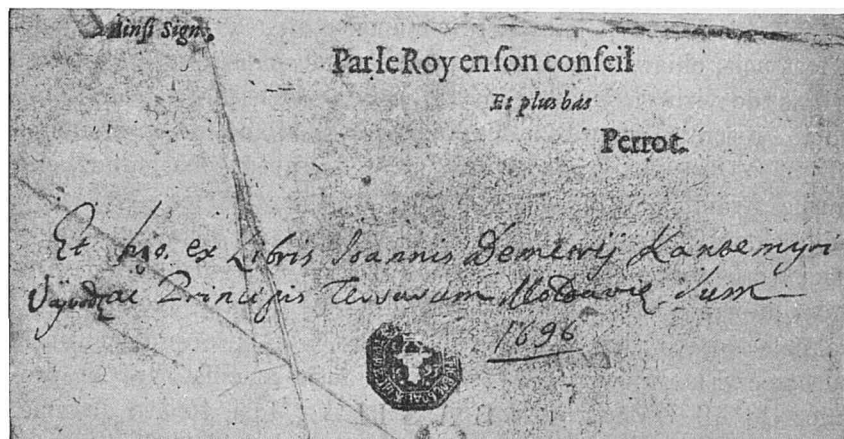 Ainſi Signé,
Par le Roy en ſon conſeil
Et plus bas
Perrot.
Et hic ex Libris Ioannis Demetrij Kantemyri
Vajvodae Principis Terrarum Moldaviȩ Sum
1696